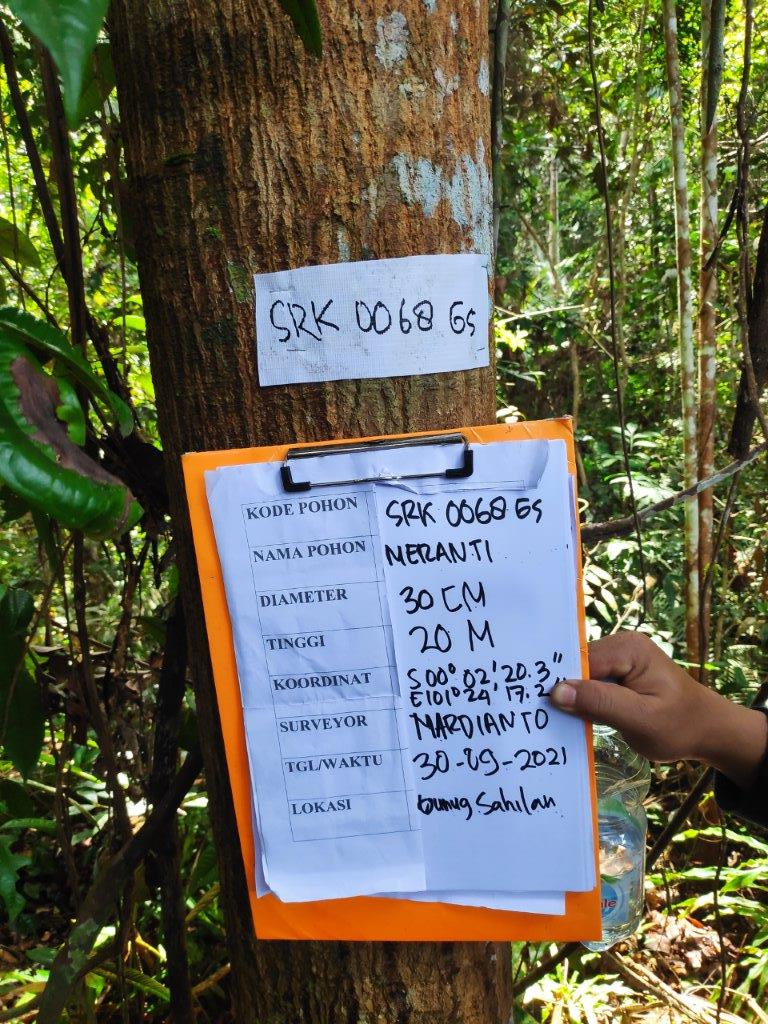 SRK 0068 GS
KODE POHON SRK 0068 GS
NAMA POHON MERANTI
DIAMETER 30 CM
TINGGI 20 M
KOORDINAT S 00° 02' 20.3"
E101° 24' 17.2"
SURVEYOR MARDIANTO
TGL/WAKTU 30-09-2021
LOKASI Gunug Sahilan